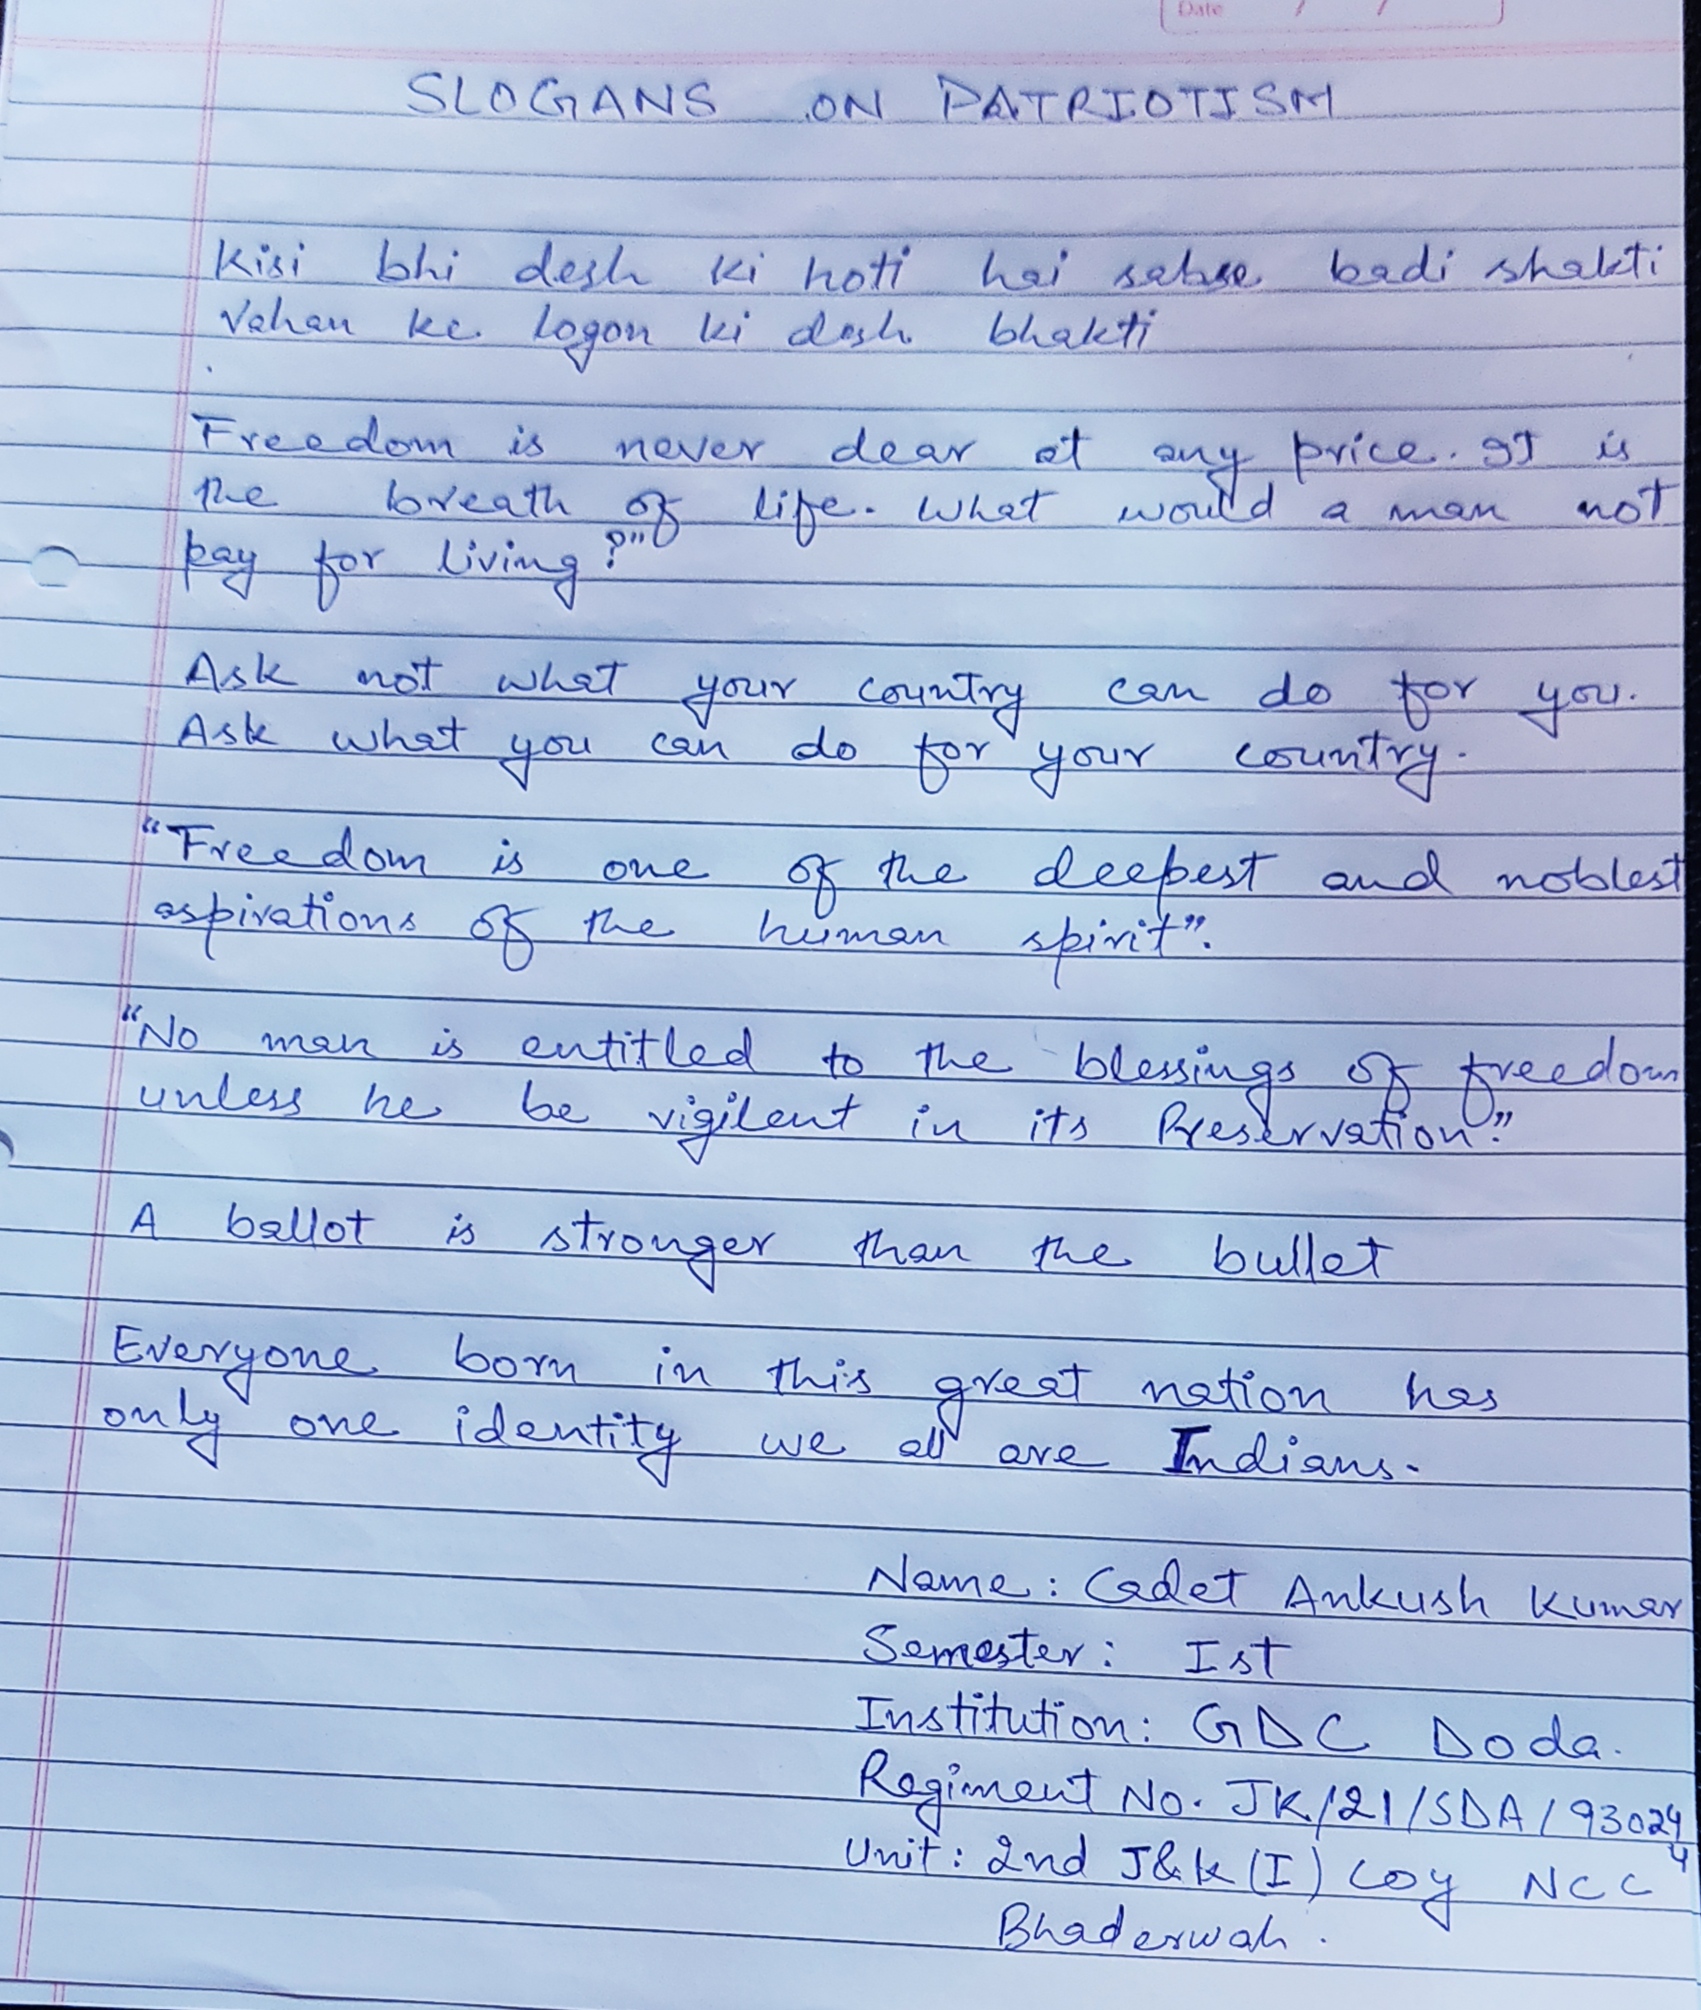 Date / /
SLOGANS ON PATRIOTISM
Kisi bhi desh ki hoti hai sabse badi shakti
Vahan ke logon ki desh bhakti
Freedom is never dear at any price. It is
the breath of life. What would a man not
pay for living?"
Ask not what your country can do for you.
Ask what you can do for your country.
"Freedom is one of the deepest and noblest
aspirations of the human spirit".
"No man is entitled to the blessings of freedom
unless he be vigilent in its Preservation."
A ballot is stronger than the bullet
Everyone born in this great nation has
only one identity we all are Indians.
Name: Cadet Ankush Kumar
Semester: Ist
Institution: GDC Doda.
Regiment No. JK/21/SDA/93024
4
Unit: 2nd J&k (I) Coy NCC
Bhaderwah.